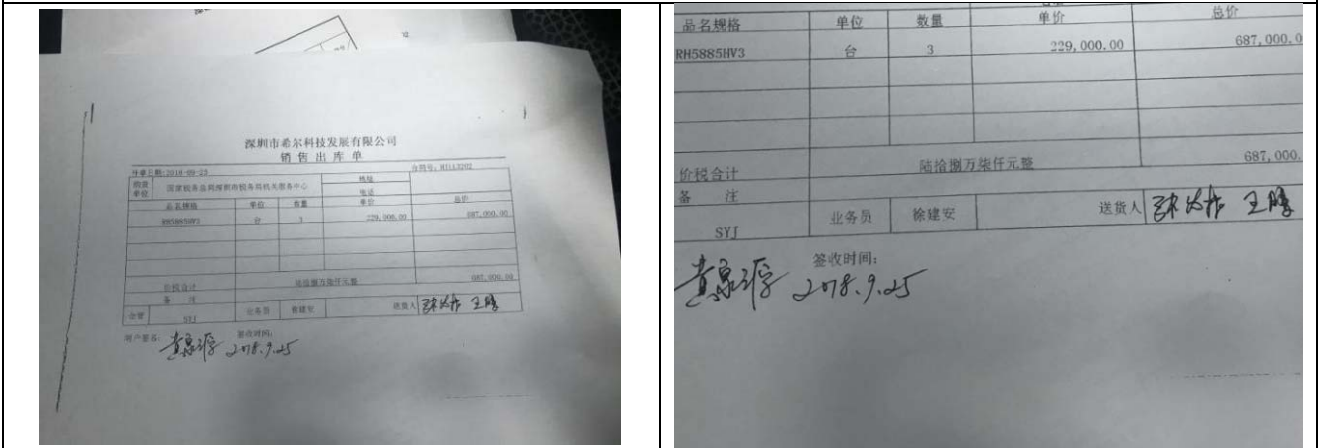 深圳市希尔科技发展有限公司
销售出库单
开单日期:2018-09-25 合同号:
购货单位 国家税务总局深圳市税务局机关服务中心 地址
电话
品名规格 单位 数量 单价 总价
RH5885HV3 台 3 229,000.00 687,000.00
价税合计 陆拾捌万柒仟元整 687,000.00
备 注
仓管 SYJ 业务员 徐建安 送货人 王鹏
用户签名: 签收时间:
2018.9.25
品名规格 单位 数量 单价 总价
RH5885HV3 台 3 229,000.00 687,000.0
价税合计 陆拾捌万柒仟元整 687,000.
备 注
SYJ 业务员 徐建安 送货人 王鹏
签收时间:
2018.9.25